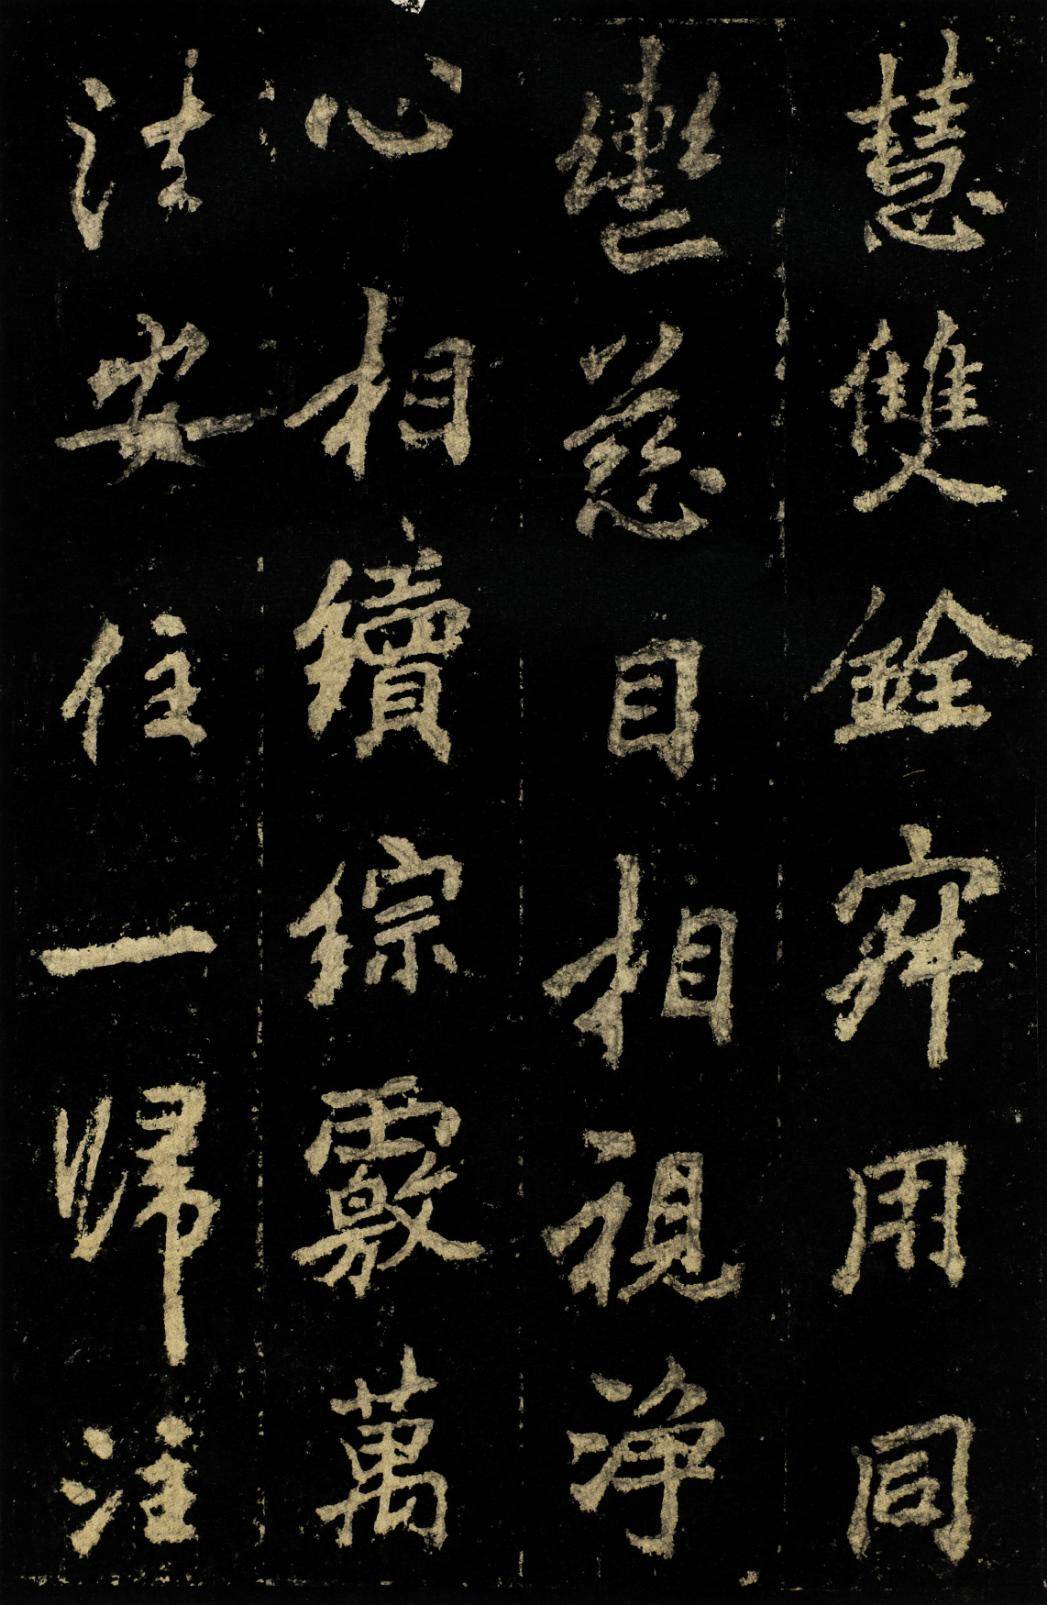 慧雙銓寂用同
轡慈目相視淨
心相續綜覈萬
法安住一歸注